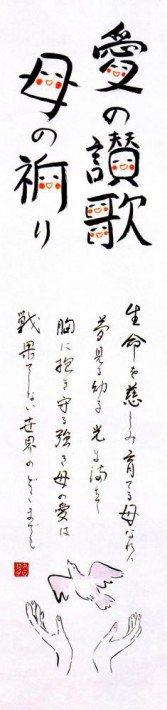 愛の讃歌
母の祈り
生命を慈しみ育てる母なれバ
夢見る幼子 光に満ちて
胸に抱き守る強き母の愛は
戦果てしない世界のどこまでも